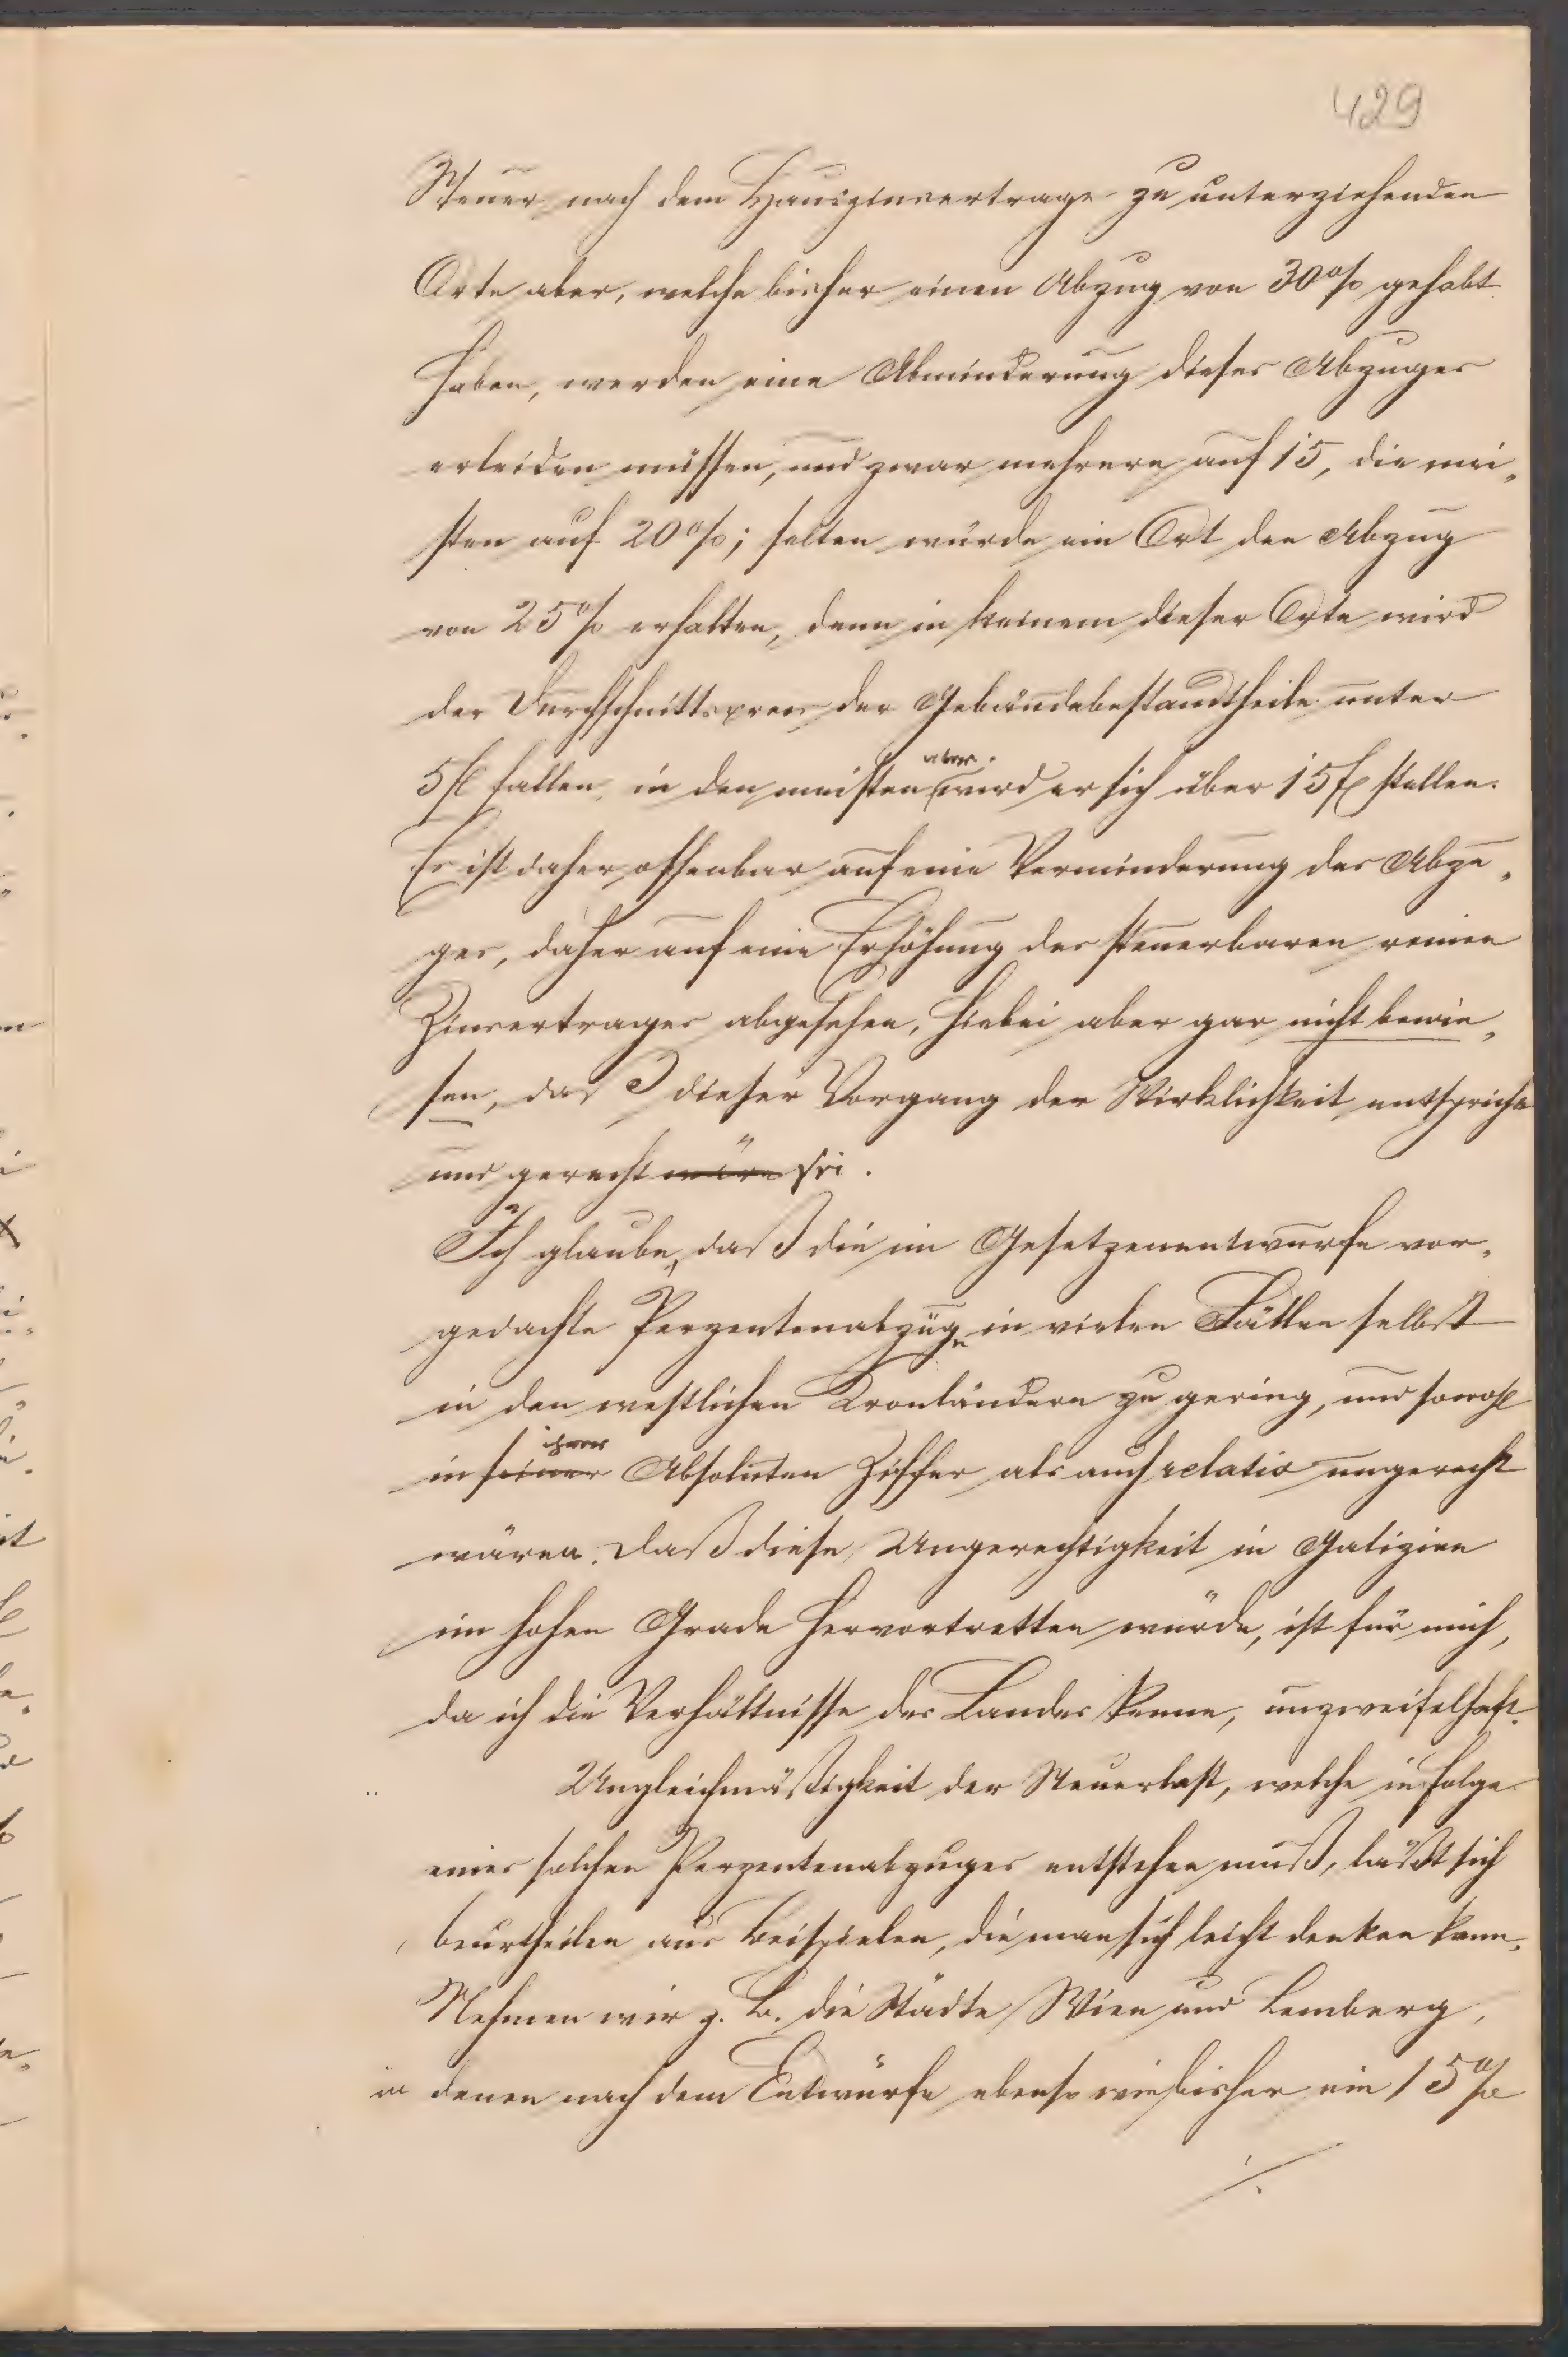 429
Steuer nach dem Hauszinsertrage zu unterziehenden
Orte aber, welche bisher einen Abzug von 30% gehabt
haben, werden eine Abminderung dieses Abzuges
erleiden müssen, und zwar mehrere auf 15, die mei„
sten auf 20%; selten würde ein Ort den Abzug
von 25% erhalten, denn in keinem dieser Orte wird
der Durchschnittspreis der Gebäudebestandtheile unter
5 fl fallen, in den meisten aber wird er sich über 15 fl stellen.
Es ist daher offenbar auf eine Verminderung des Abzu„
ges, daher auf eine Erhöhung des steuerbaren reinen
Zinsertrages abgesehen, hiebei aber gar nicht bewie„
sen, daß dieser Vorgang der Wirklichkeit entspreche
und gerecht wäre sei.
Ich glaube, daß die im Gesetzenentwurfe vor„
gedachte Perzentenabzüge in vielen Fällen selbst
in den westlichen Kronländern zu gering, und sowohl
in seiner ihrer Absoluten Ziffer als auch relativ ungerecht
wären. Daß diese Ungerechtigkeit in Galizien
im hohen Grade hervortretten würde, ist für mich,
da ich die Verhältnisse des Landes kenne, unzweifelhaft.
Ungleichmäßigkeit der Steuerlast, welche in Folge
eines solchen Perzentenabzuges entstehen muß, läßt sich
beurtheilen aus Beispielen, die man sich leicht denken kann.
Nehmen wir z. B. die Städte Wien und Lemberg,
in denen nach dem Entwurfe ebenso wie bisher ein 15%
./.